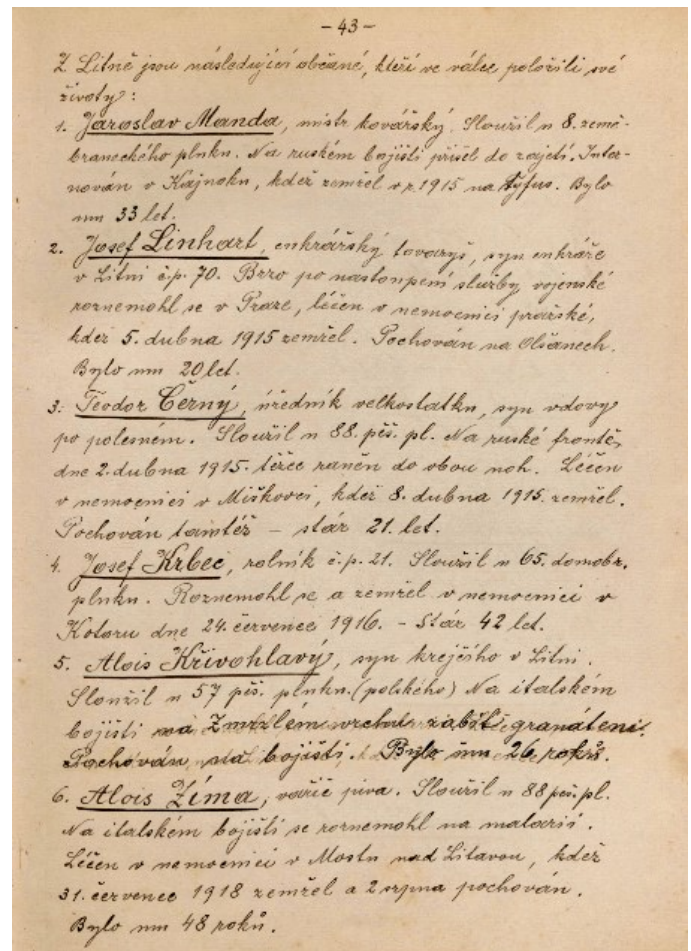 - 43 -
Z Litně jsou následující občané, kteří ve válce položili své
životy:
1. Jaroslav Manda, mistr kovářský. Sloužil u 8. země-
braneckého pluku. Na ruském bojišti přišel do zajetí. Inter-
nován v Kajnoku, kdež zemřel v r. 1915 na tyfus. Bylo
mu 33 let.
2. Josef Linhart, cukrářský tovaryš, syn cukráře
v Litni č.p. 70. Brzo po nastoupení služby vojenské
roznemohl se v Praze, léčen v nemocnici pražské,
kdež 5. dubna 1915 zemřel. Pochován na Olšanech.
Bylo mu 20 let.
3. Teodor Černý, úředník velkostatku, syn vdovy
po polesném. Sloužil u 88. pěš. pl. Na ruské frontě,
dne 2. dubna 1915. těžce raněn do obou noh. Léčen
v nemocnici v Miškovci, kdež 8. dubna 1915. zemřel.
Pochován tamtéž - stár 21. let.
4. Josef Krbec, rolník č.p. 21. Sloužil u 65. domobr.
pluku. Roznemohl se a zemřel v nemocnici v
Kotoru dne 24. července 1916. - Stár 42 let.
5. Alois Křivohlavý, syn krejčího v Litni.
Sloužil u 57 pěš. pluku. (polského) Na italském
bojišti na Zmrzlém vrchu zabit granátem.
Pochován na bojišti. Bylo mu 26 roků.
6. Alois Zíma, vařič piva. Sloužil u 88 pěš. pl.
Na italském bojišti se roznemohl na malarii.
Léčen v nemocnici v Mostu nad Litavou, kdež
31. července 1918 zemřel a 2 srpna pochován.
Bylo mu 48 roků.